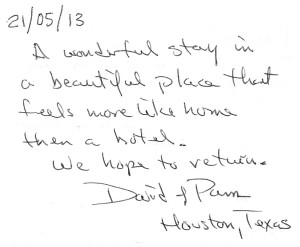 21/05/13
A wonderful stay in
a beautiful place that
feels more like home
then a hotel.
We hope to return.
David & Pam
Houston, Texas